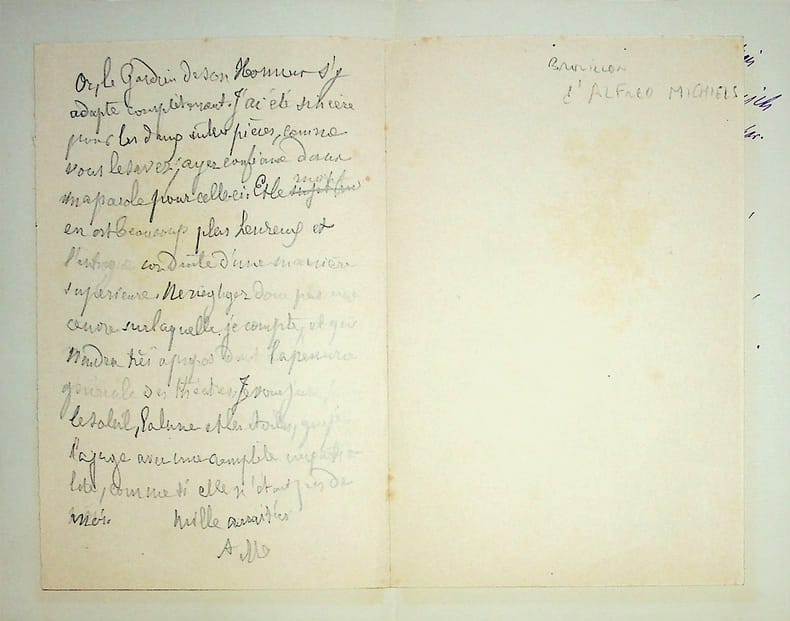 Or, le Gardien de son Honneur s'y
adapte complètement. J'ai été sincère
pour les deux autres pièces, comme
vous le savez; ayez confiance dans
ma parole pour celle-ci. Et le motif
en est beaucoup plus heureux et
l'intrigue conduite d'une manière
supérieure. Ne négligez donc pas une
œuvre sur laquelle je compte, et qui
viendra très à propos dans la pénurie
générale des théâtres. Je vous jure,
le soleil, la lune et les étoiles, que je
l'ai jugé avec une complète
comme si elle n'était pas de
moi. Mille amitiés
A M
Brouillon
d'Alfred Michiels